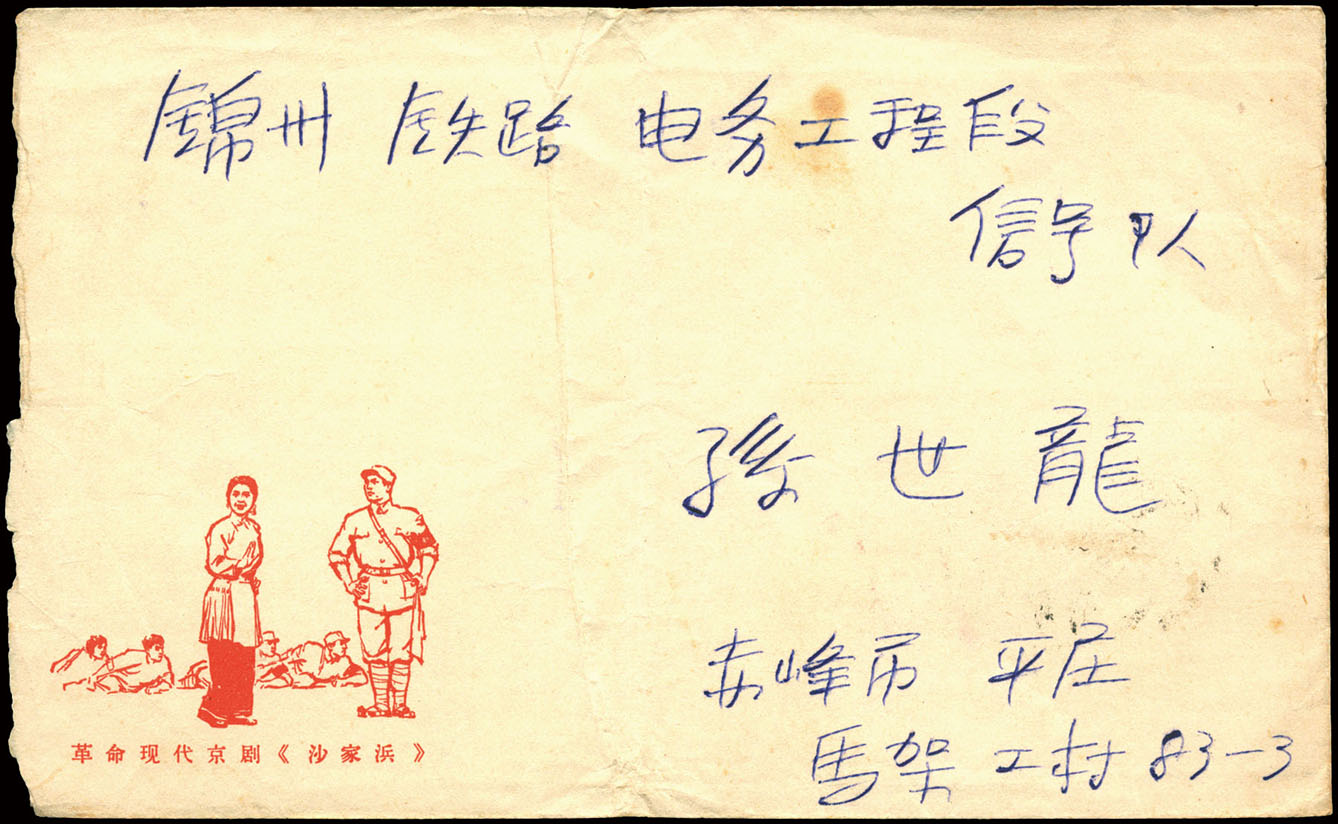 錦州 铁路 电务工程段
信号队
孫世龍
赤峰市 平庄
馬架工村 83-3
革命现代京剧《沙家浜》